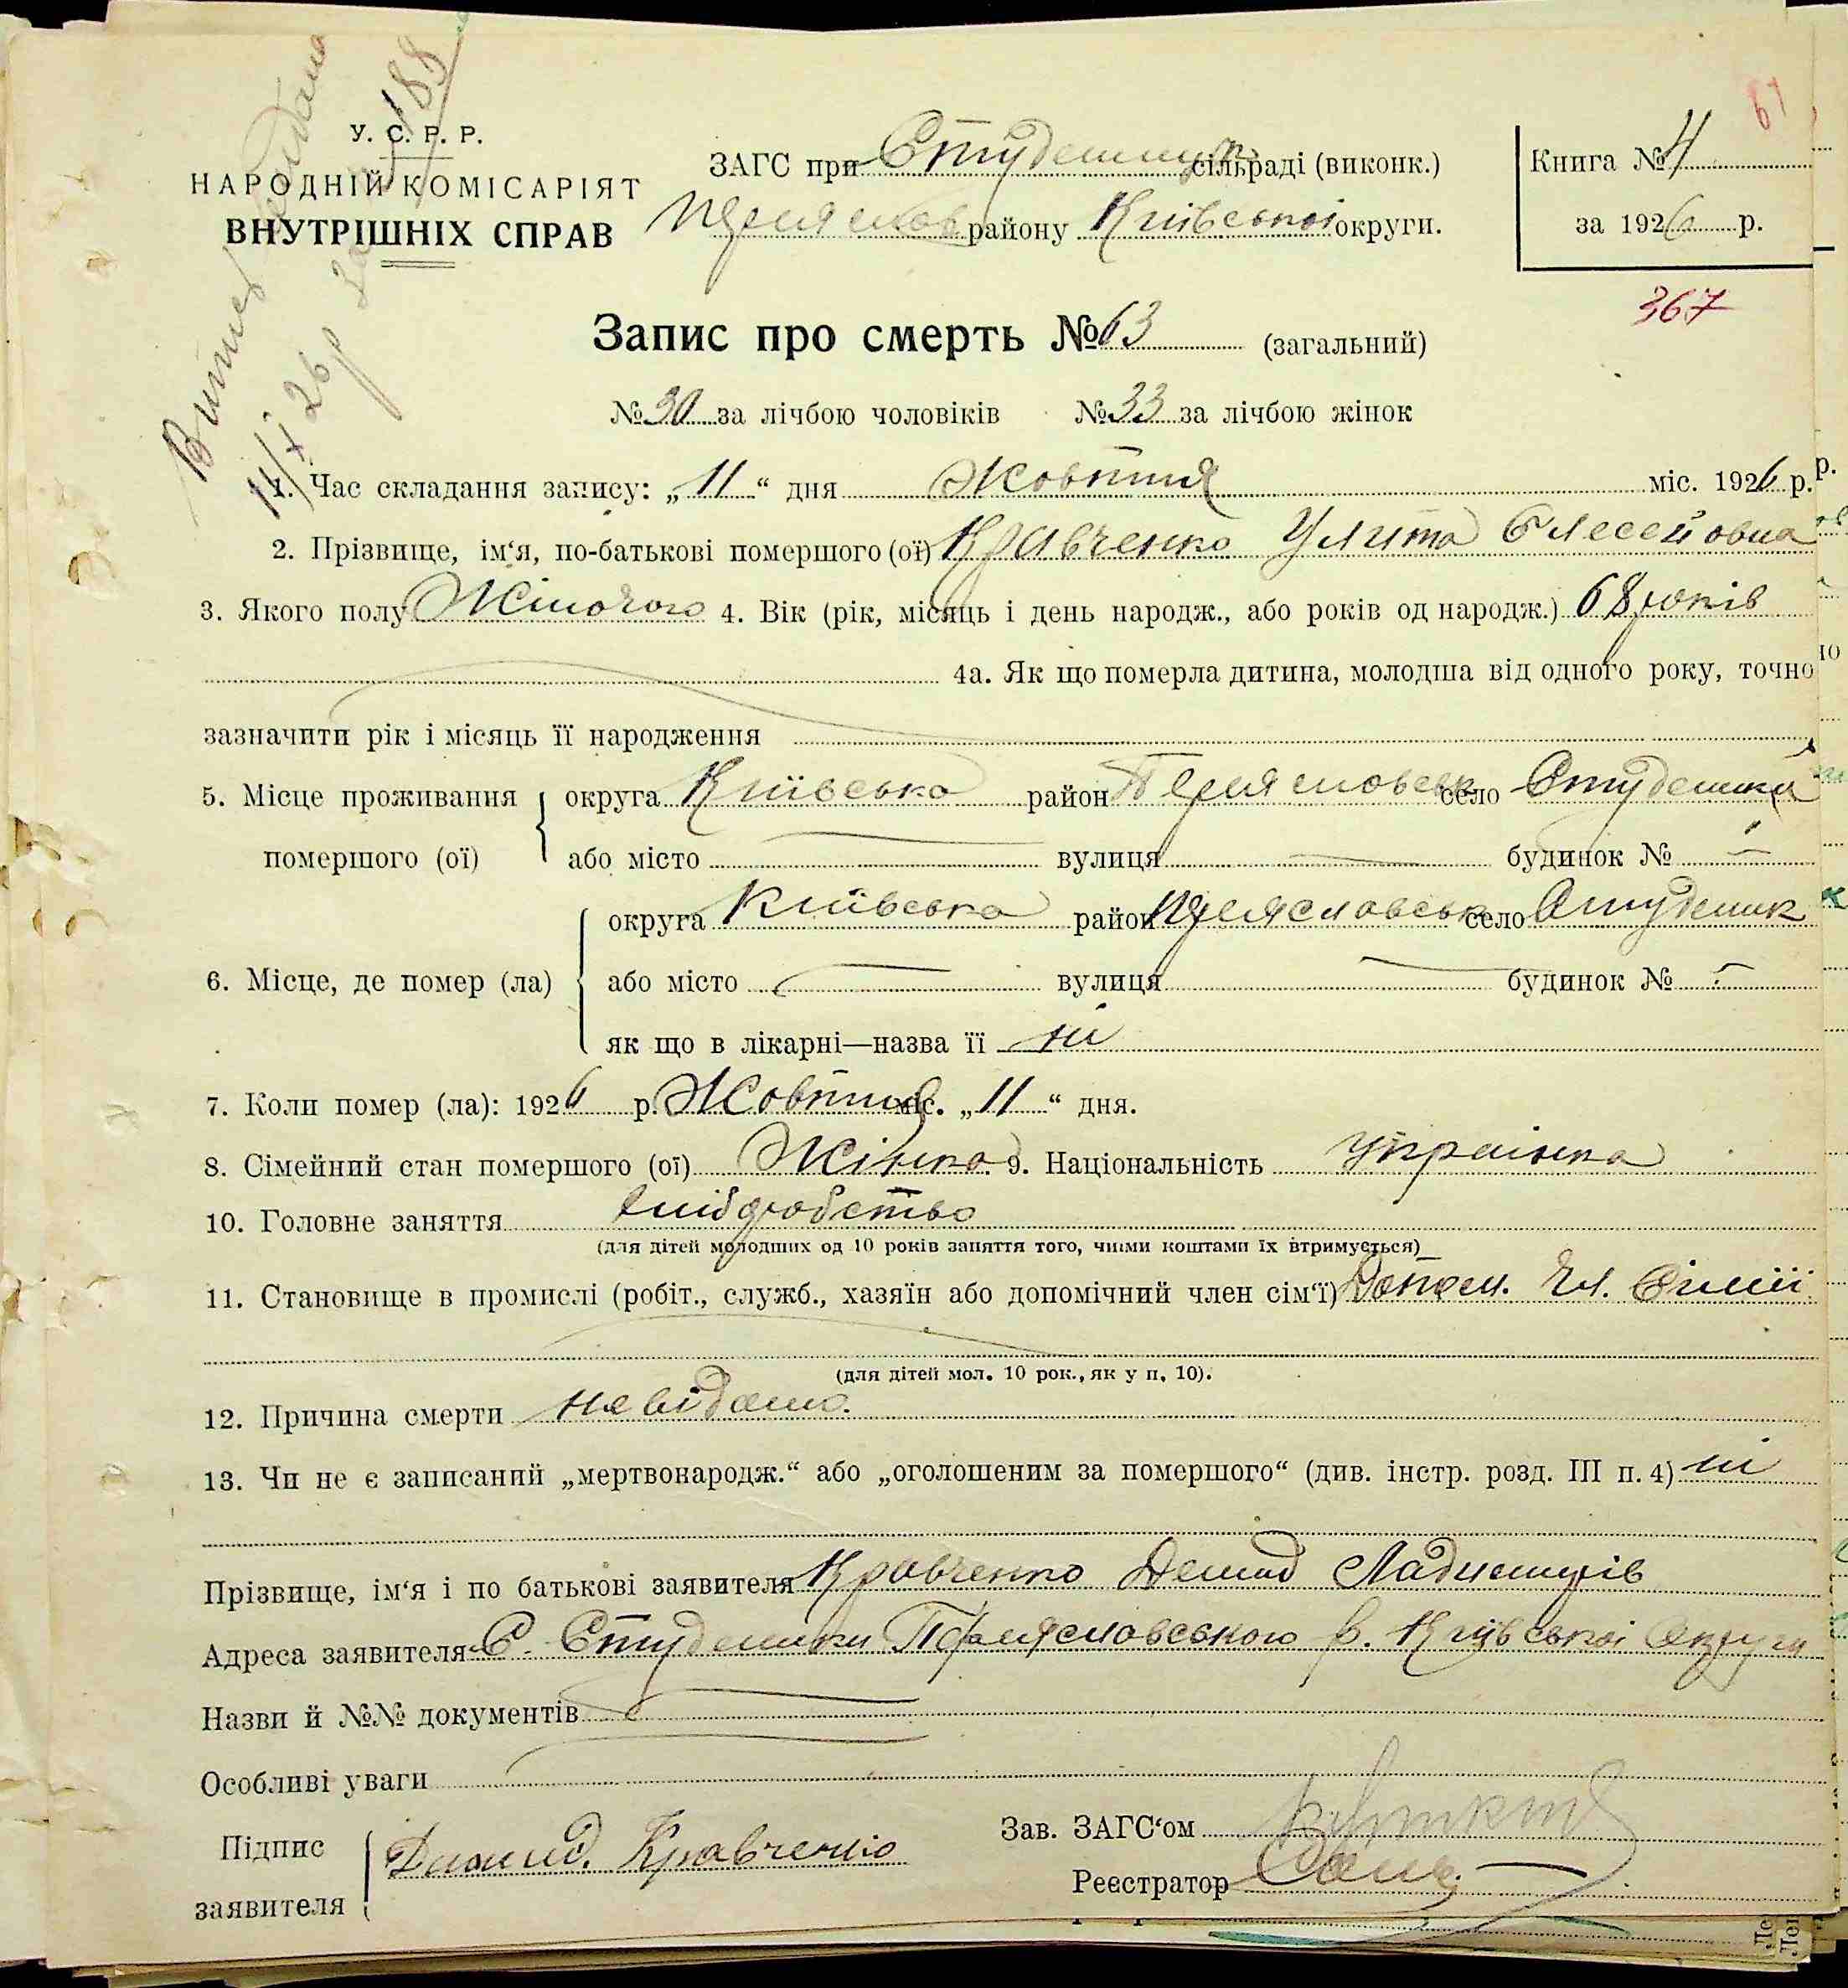 Витяг видано
14/X 26 р за № 188
У. С. Р. Р.
НАРОДНІЙ КОМІСАРІЯТ
ВНУТРІШНІХ СПРАВ
ЗАГС при Студениц. сільраді (виконк.)
Переяслов району Київської округи.
Книга № 4
за 1926 р.
61
367
Запис про смерть № 63 (загальний)
№ 30 за лічбою чоловіків № 33 за лічбою жінок
1. Час складання запису: „11“ дня Жовтня міс. 1926 р.
2. Прізвище, ім‘я, по-батькові помершого (ої) Кравченко Улита Елесейовна
3. Якого полу Жіночого 4. Вік (рік, місяць і день народж., або років од народж.) 68 років
4а. Як що померла дитина, молодша від одного року, точно
зазначити рік і місяць її народження
5. Місце проживання помершого (ої) округа Київська район Переясловськ село Студеники
або місто вулиця будинок №
6. Місце, де помер (ла) округа Київська район Переясловськ село Студеник
або місто вулиця будинок №
як що в лікарні—назва її ні
7. Коли помер (ла): 1926 р. Жовтня міс. „11“ дня.
8. Сімейний стан помершого (ої) Жінка 9. Національність Українка
10. Головне заняття хлібробство
(для дітей молодших од 10 років заняття того, чиїми коштами їх втримується)
11. Становище в промислі (робіт., служб., хазяїн або допомічний член сім‘ї) Допом. чл. Сімії
(для дітей мол. 10 рок., як у п. 10).
12. Причина смерти невідомо.
13. Чи не є записаний „мертвонародж.“ або „оголошеним за помершого“ (див. інстр. розд. III п. 4) ні
Прізвище, ім‘я і по батькові заявителя Кравченко Демид Ладимирів
Адреса заявителя С. Студеники Переясловського р. Київської Округи
Назви й №№ документів
Особливі уваги
Підпис заявителя Демид. Кравченко
Зав. ЗАГС‘ом
Реєстратор